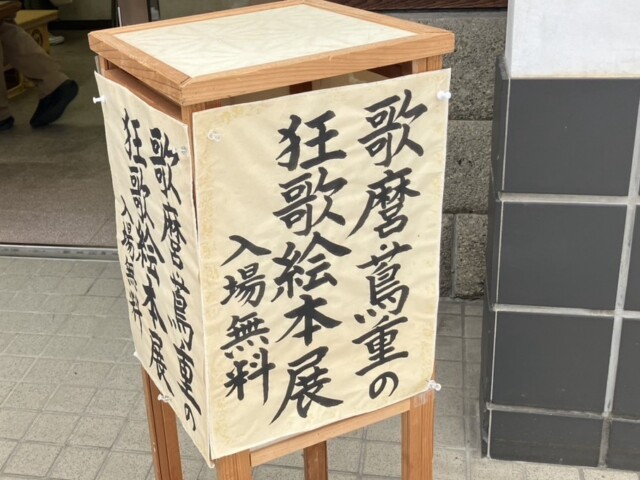 歌麿蔦重の
狂歌絵本展
入場無料
歌麿蔦重の
狂歌絵本展
入場無料